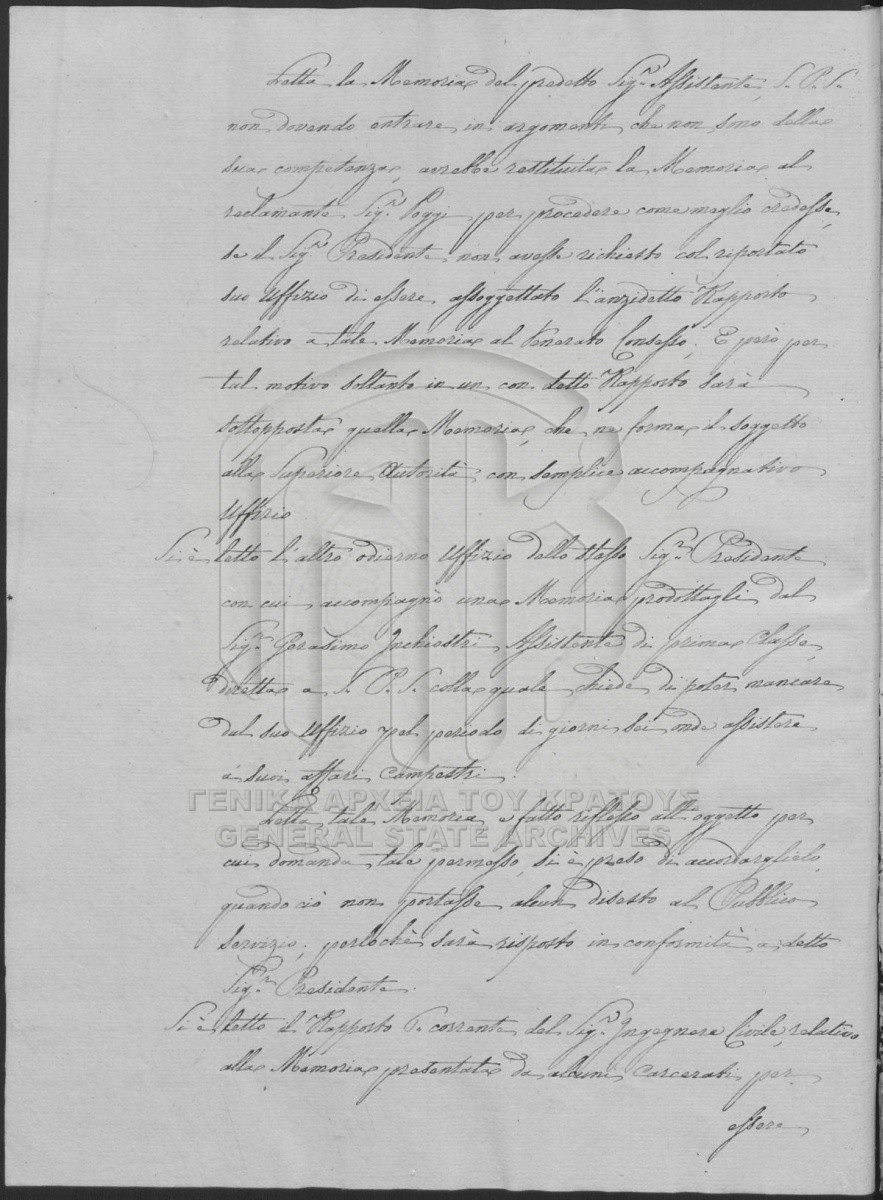 Letta la Memoria del predetto Sig.r Assistente, S. P. S.
non dovendo entrare in argomenti che non sono della
sua competenza, avrebbe restituita la Memoria al
reclamante Sig.r Poggi per procedere come meglio credesse,
se il Sig.r Presidente non avesse richiesto col riportato
suo Uffizio di essere assoggettato l'anzidetto Rapporto
relativo a tale Memoria al Venerato Consesso. E però per
tal motivo soltanto in un con detto Rapporto sarà
sottopposta quella Memoria, che ne forma il soggetto
alla Superiore Autorità con semplice accompagnativo
Uffizio
Si è letto l'altro odierno Uffizio dello stesso Sig.r Presidente
con cui accompagnò una Memoria prodottagli dal
Sig.r Gerasimo Inchiostri Assistente di prima Classe,
diretta a S. P. S. colla quale chiede di poter mancare
dal suo Uffizio pel periodo di giorni sei onde assistere
a suoi affari campestri.
ΓΕΝΙΚΑ ΑΡΧΕΙΑ ΤΟΥ ΚΡΑΤΟΥΣ
GENERAL STATE ARCHIVES
Letta tale Memoria e fatto riflesso all'oggetto per
cui domanda tale permesso, si è preso di accordarglielo,
quando ciò non portasse alcun disesto al Pubblico
Servizio; perlochè sarà risposto in conformità a detto
Sig.r Presidente.
Si è letto il Rapporto corrente del Sig.r Ingegnere Civile, relativo
alla Memoria presentata da alcuni carcerati per
essere